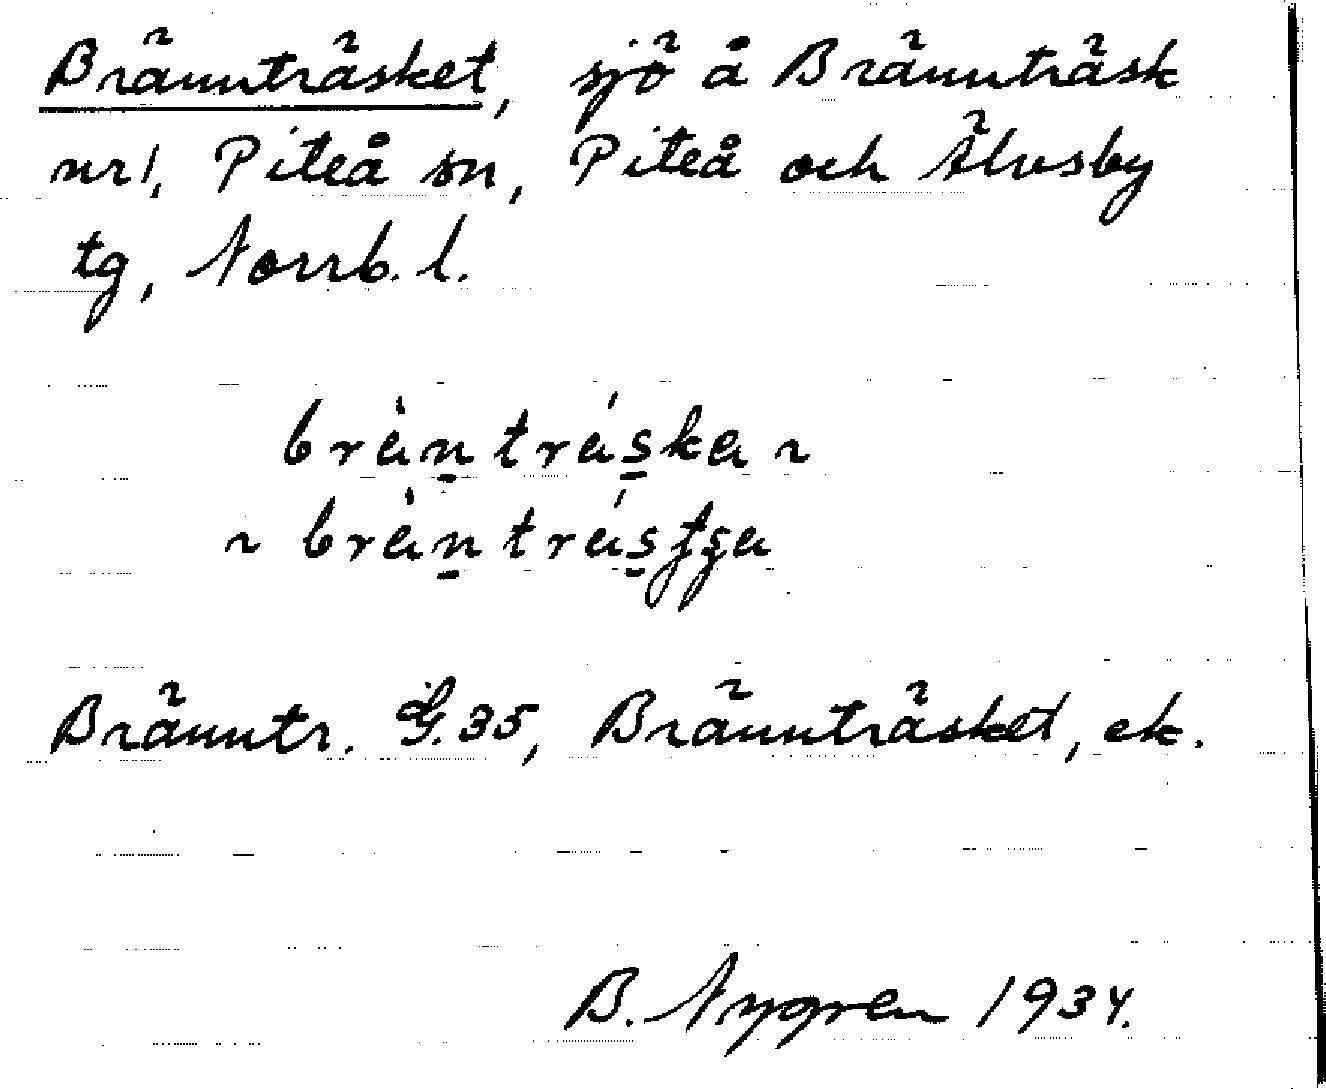 Bränuträsket, sjö å Bränuträsk
nr 1, Piteå sn, Piteå och Älvsby
tg, Norrb. l.
brànträska ~
~ bràntrásʈʂa
Bränntr. G. 35, Brännträsket, ek.
B. Nygren 1934.